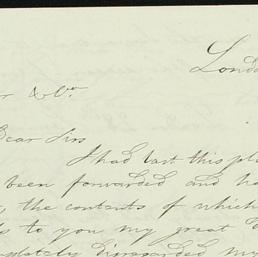 London
r & Co
Dear Sirs
I had last this pl
been forwarded and ha
the contents of which
s to you my great d
pletely disregarded my